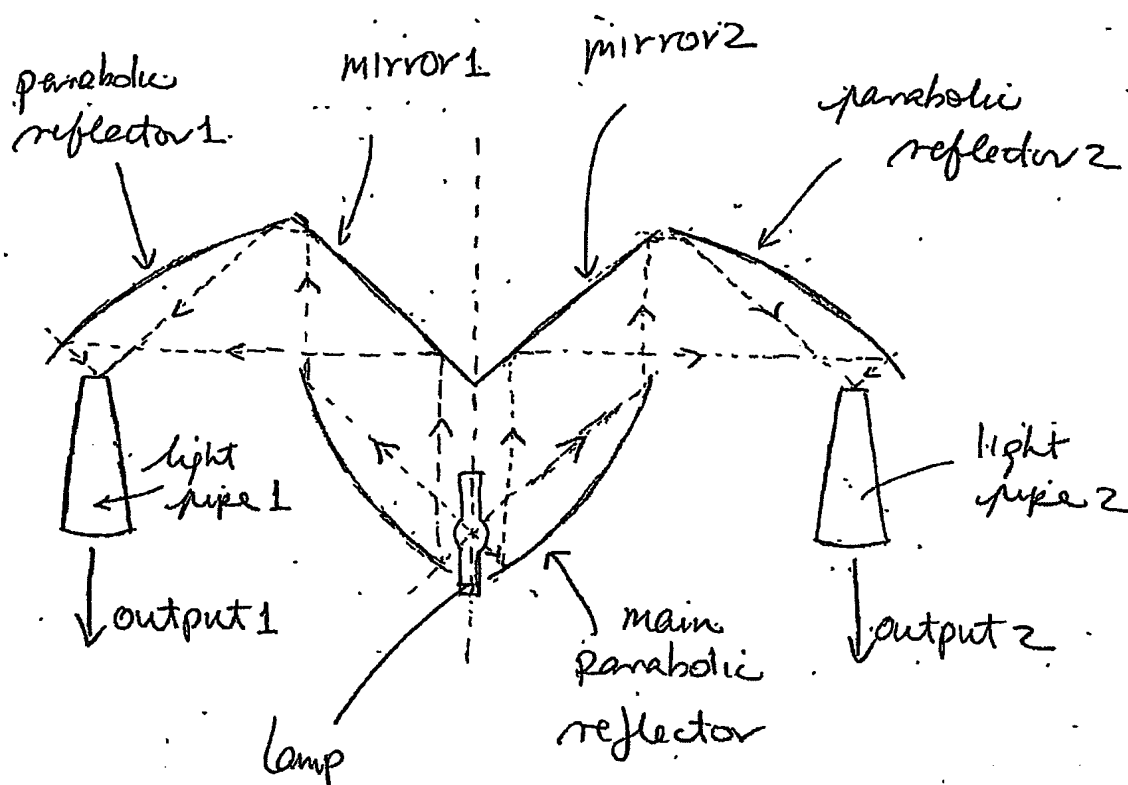 parabolic
reflector 1
mirror 1
mirror 2
parabolic
reflector 2
light
pipe 1
light
pipe 2
output 1
output 2
main
parabolic
reflector
lamp